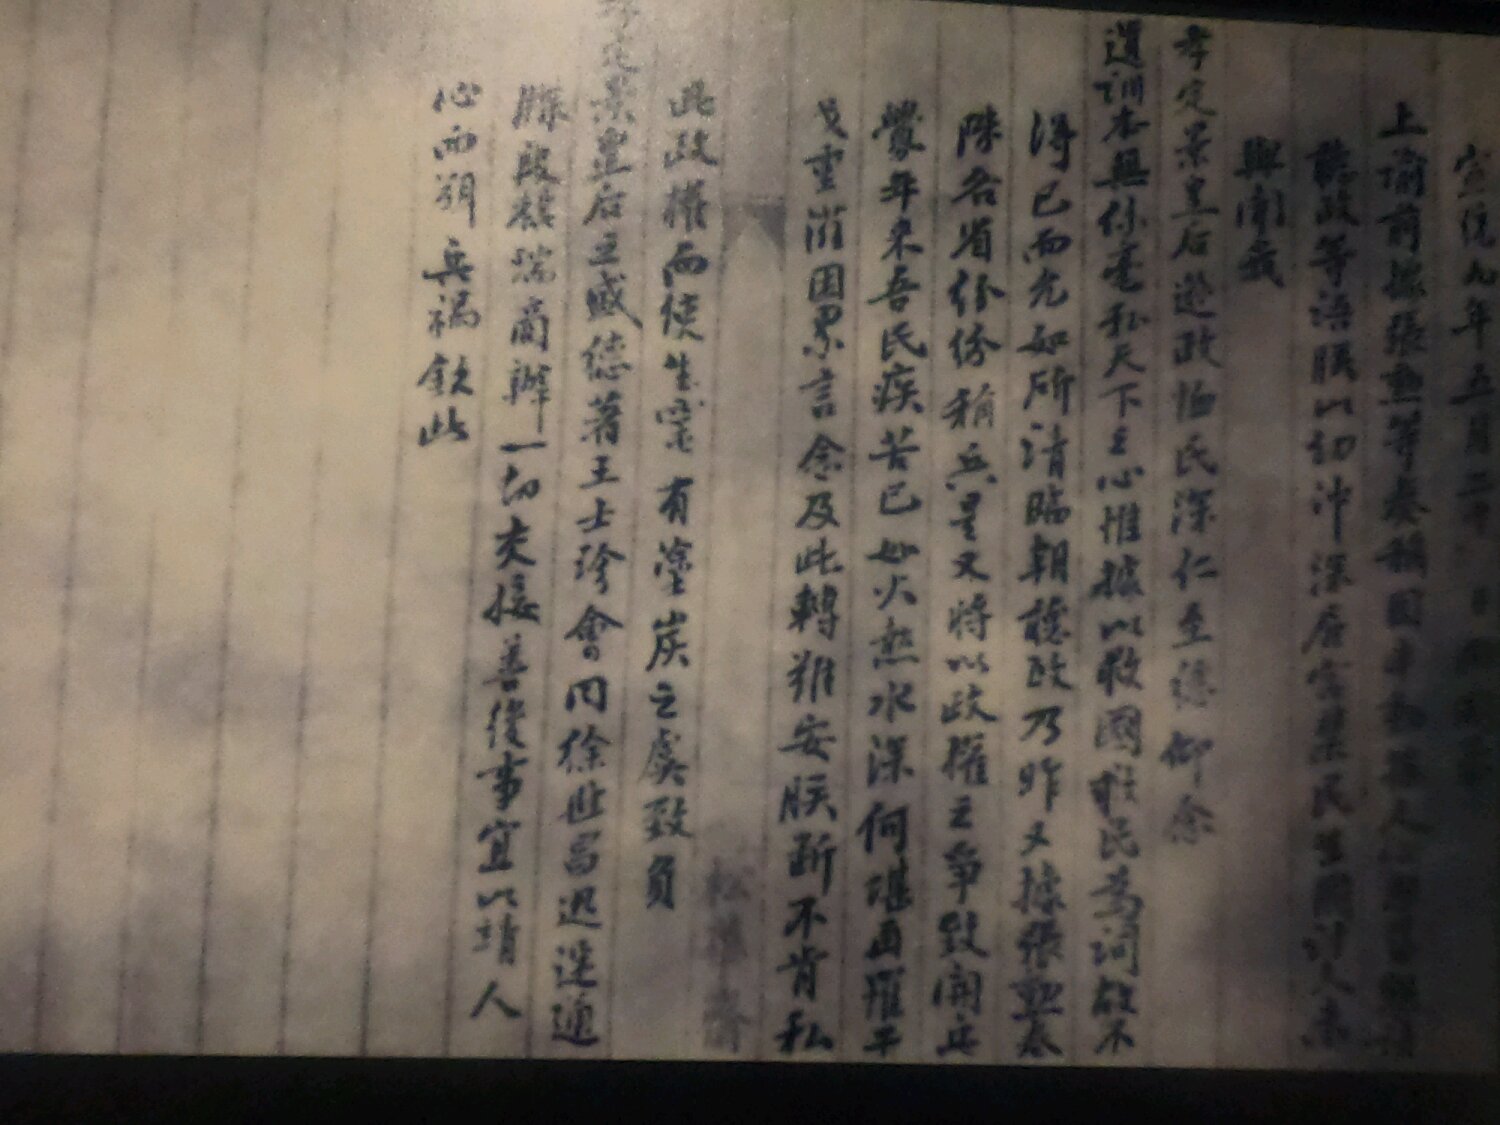 宣統九年五月二十
上諭前據張勳等奏稱國
聽政等語朕以幼沖深居宮禁民生國計久未
與聞我
孝定景皇后遜政恤民深仁至德仰念
遺訓本無絲毫私天下之心惟據以救國救民為詞故不
得已而允如所請臨朝聽政乃昨又據張勳奏
陳各省紛紛稱兵是又將以政權之爭致開兵
釁年來吾民疾苦已如火熱水深何堪再罹干
戈重滋困累言念及此轉難安朕斷不肯私
此政權而使生靈有塗炭之虞致負
孝定景皇后之盛德著王士珍會同徐世昌迅速通
牒段祺瑞商辦一切交接善後事宜以靖人
心而弭兵禍欽此
松 齋